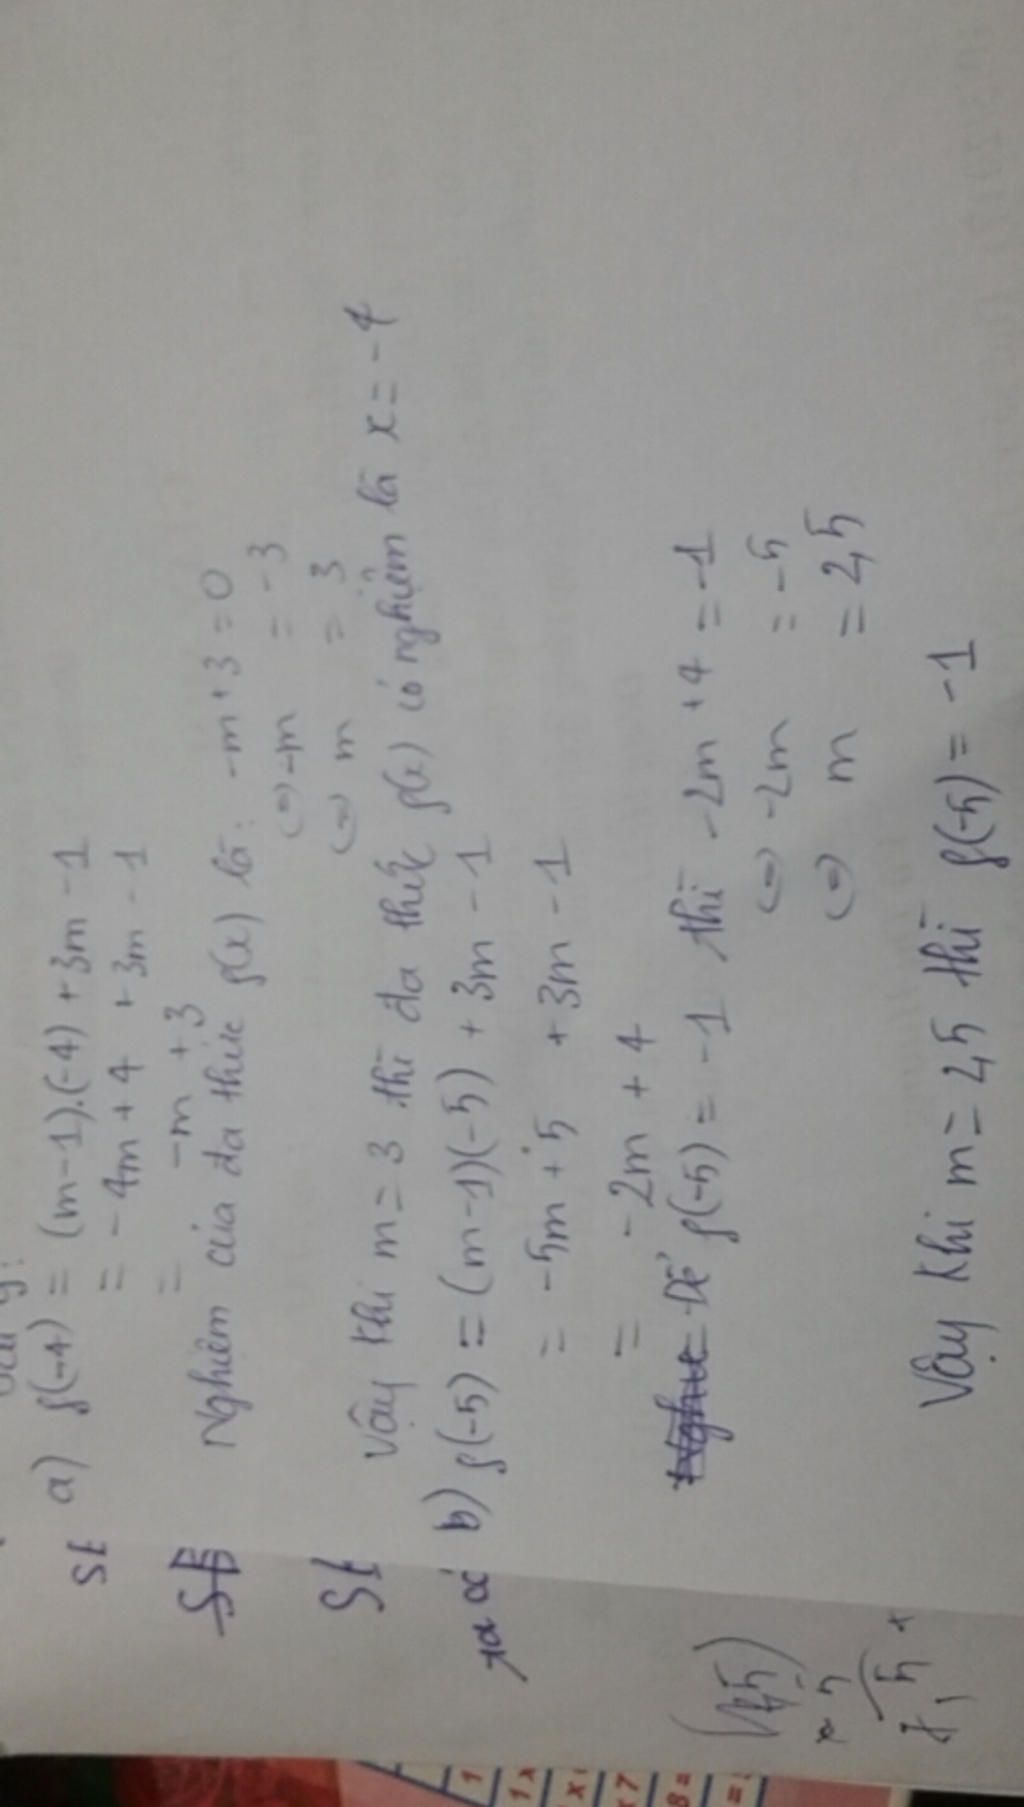 a) f(-4) = (m-1).(-4) + 3m - 1
= -4m + 4 + 3m - 1
= -m + 3
Nghiệm của đa thức f(x) là: -m + 3 = 0
(=) -m = -3
(=) m = 3
Vậy khi m = 3 thì đa thức f(x) có nghiệm là x = -4
b) f(-5) = (m-1)(-5) + 3m - 1
= -5m + 5 + 3m - 1
= -2m + 4
Để f(-5) = -1 thì -2m + 4 = -1
(=) -2m = -5
(=) m = 2,5
Vậy khi m = 2,5 thì f(-5) = -1